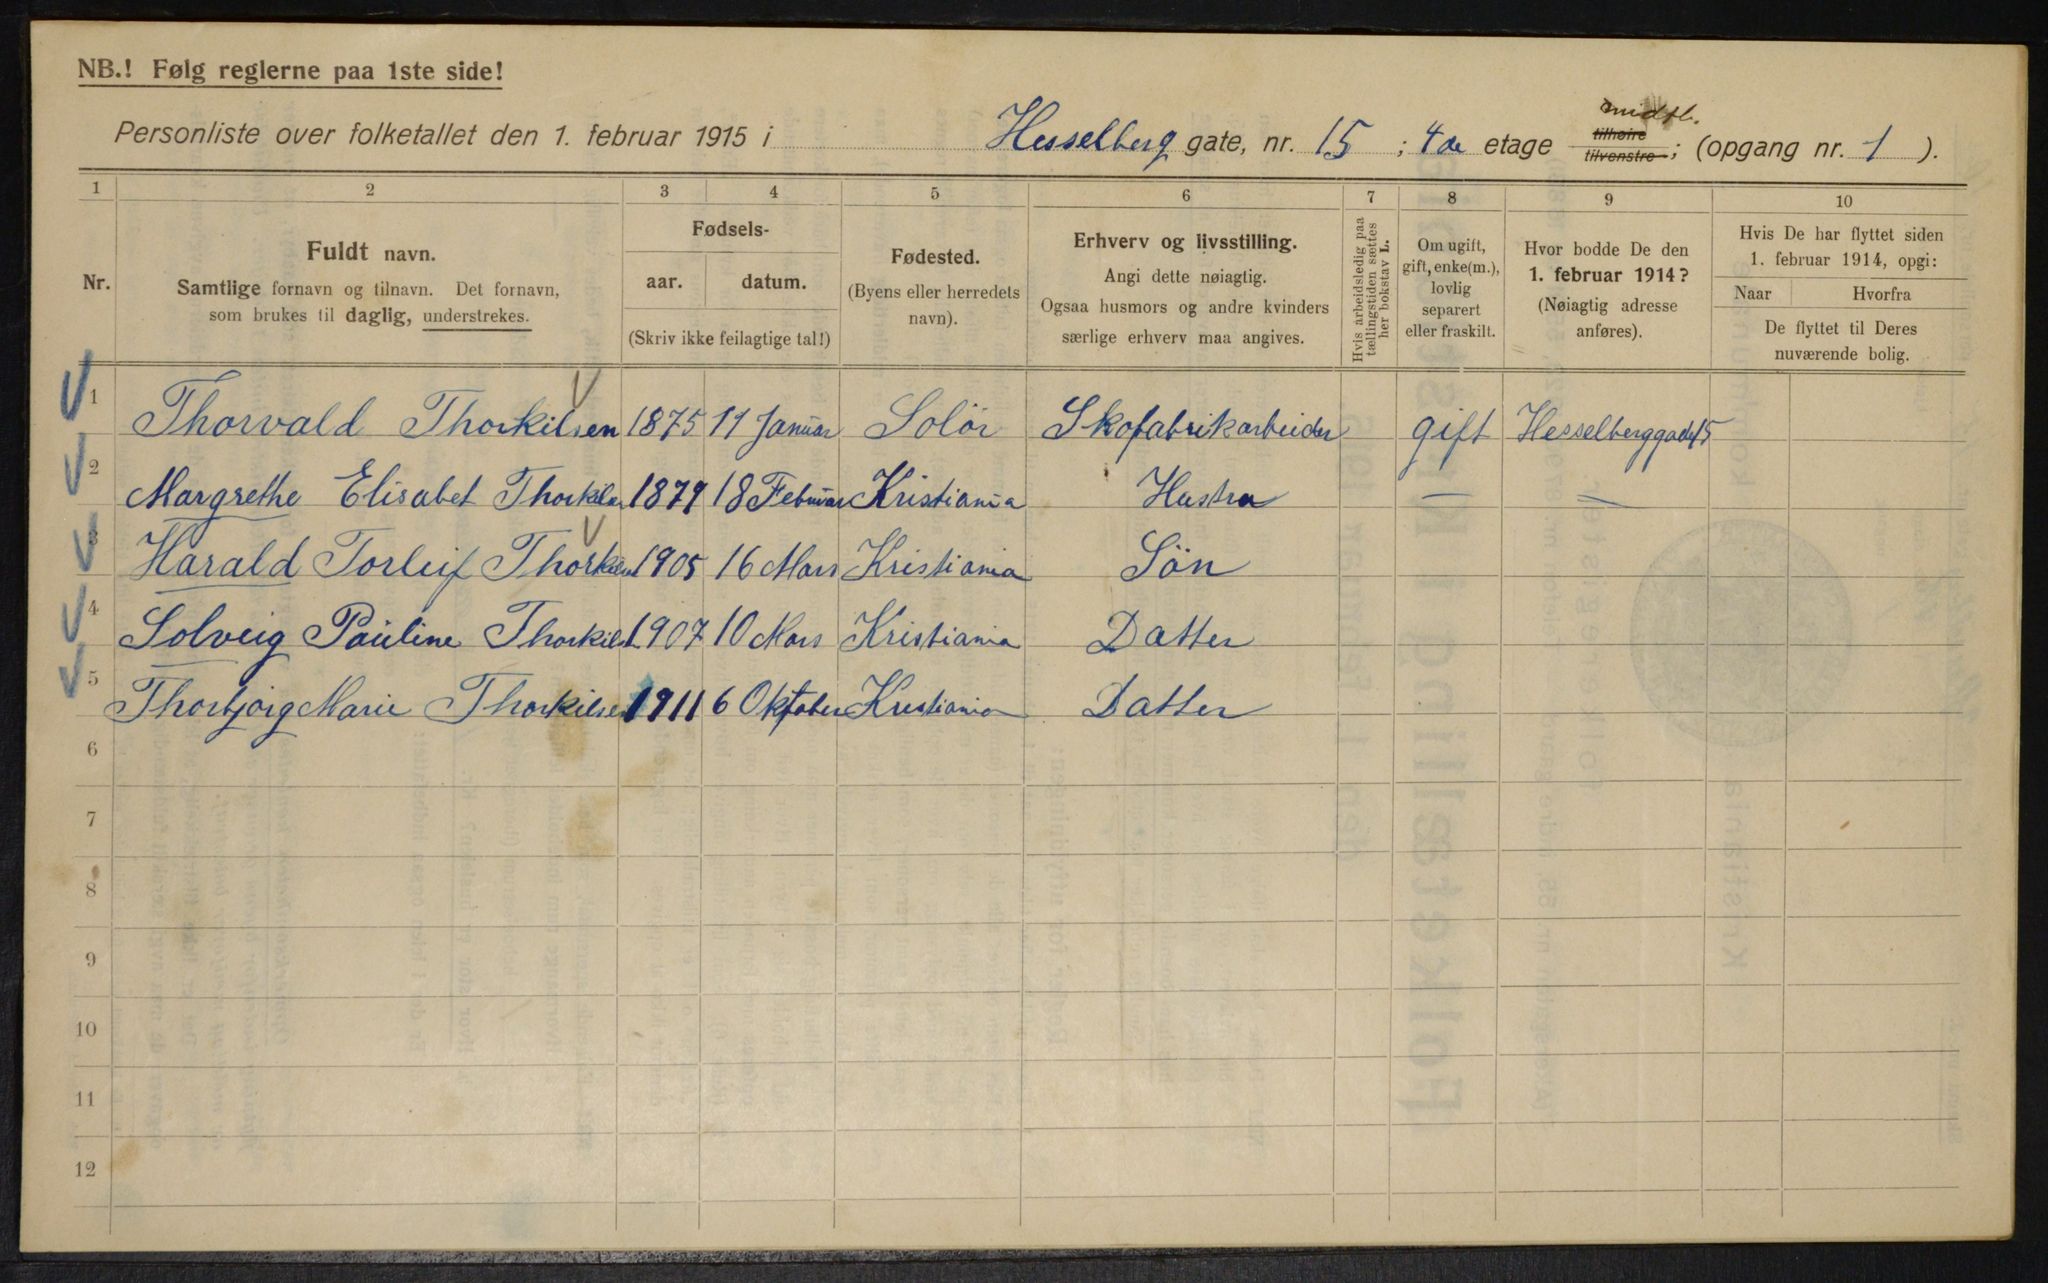 NB.! Følg reglerne paa 1ste side!
midtb.
Personliste over folketallet den 1. februar 1915 i Hesselberg gate, nr. 15 ; 4de etage tilhøire tilvenstre ; (opgang nr. 1 ).
1 2 3 4 5 6 7 8 9 10
Nr.
Fuldt navn.
Samtlige fornavn og tilnavn. Det fornavn,
som brukes til daglig, understrekes.
Fødsels-
aar. datum.
(Skriv ikke feilagtige tal!)
Fødested.
(Byens eller herredets
navn).
Erhverv og livsstilling.
Angi dette nøiagtig.
Ogsaa husmors og andre kvinders
særlige erhverv maa angives.
Hvis arbeidsledig paa
tællingstiden sættes
her bokstav L.
Om ugift,
gift, enke(m.),
lovlig
separert
eller fraskilt.
Hvor bodde De den
1. februar 1914?
(Nøiagtig adresse
anføres).
Hvis De har flyttet siden
1. februar 1914, opgi:
Naar Hvorfra
De flyttet til Deres
nuværende bolig.
1 Thorvald Thorkilsen 1875 11 Januar Solör Skofabrikarbeider gift Hesselberggade 15
2 Margrethe Elisabet Thorkilsen 1879 18 Februar Kristiania Hustru — =
3 Harald Torleif Thorkilsen 1905 16 Mars Kristiania Sön
4 Solveig Pauline Thorkils. 1907 10 Mars Kristiania Datter
5 Thorbjörg Marie Thorkilsen 1911 6 Oktober Kristiania Datter
6
7
8
9
10
11
12